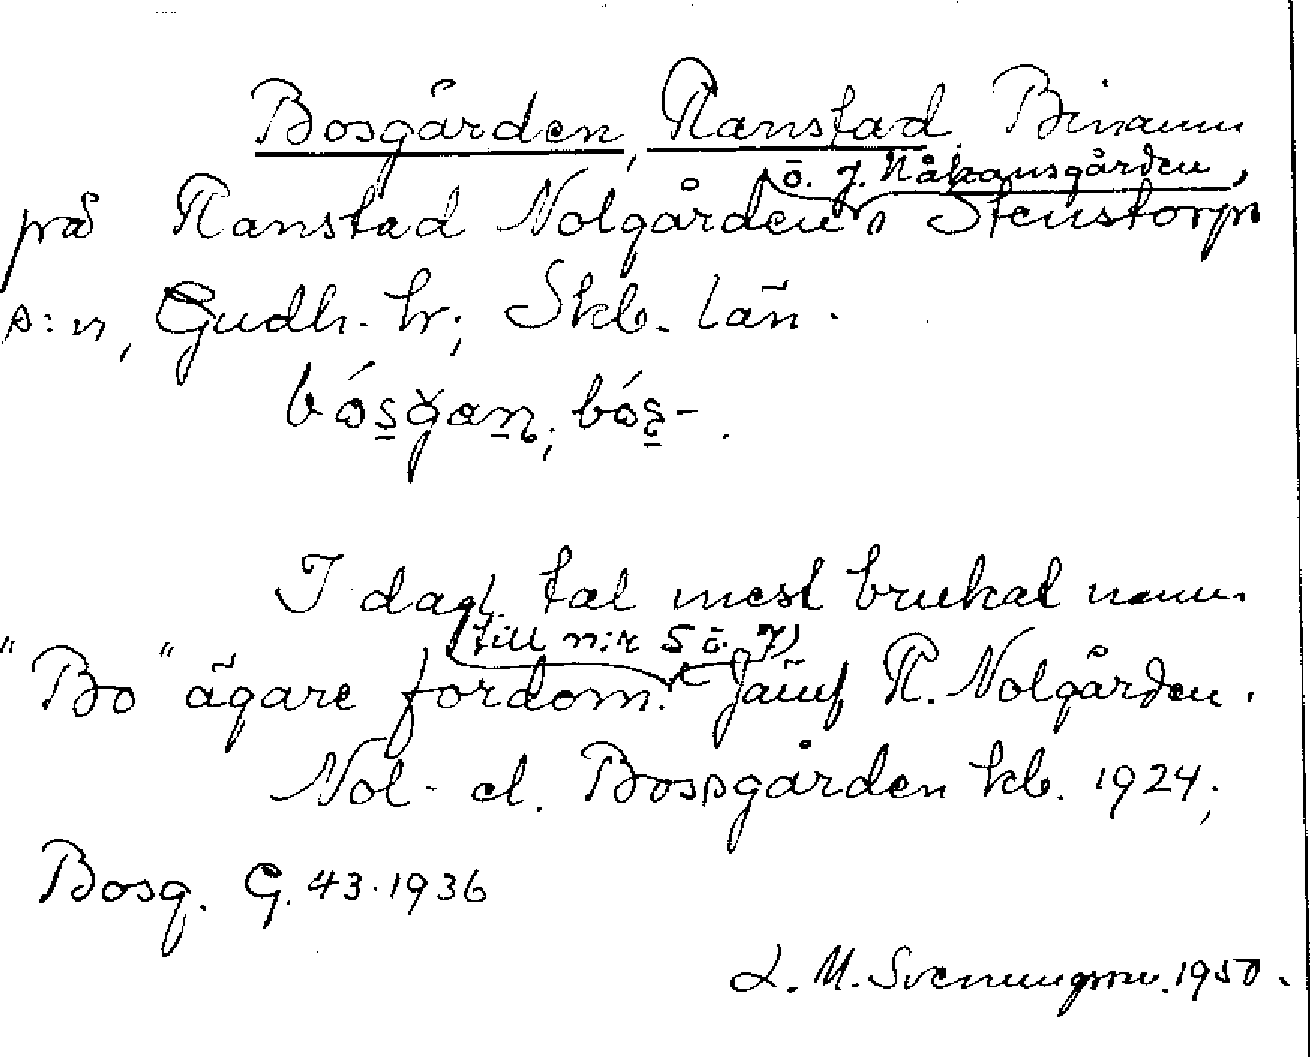 Bosgården, Ranstad. Binamn
ö. 7. Håkansgården,
på Ranstad Nolgården, Stenstorps
s:n, Gudh. hr; Skb. län.
bósgan; bós-.
I dagl. tal mest brukat namn.
(till n:r 5 ö. 7)
"Bo" ägare fordom. Jämf R. Nolgården.
Nol- el. Bossgården kb. 1924;
Bosg. G. 43. 1936
L. M. Svenungsson. 1950.